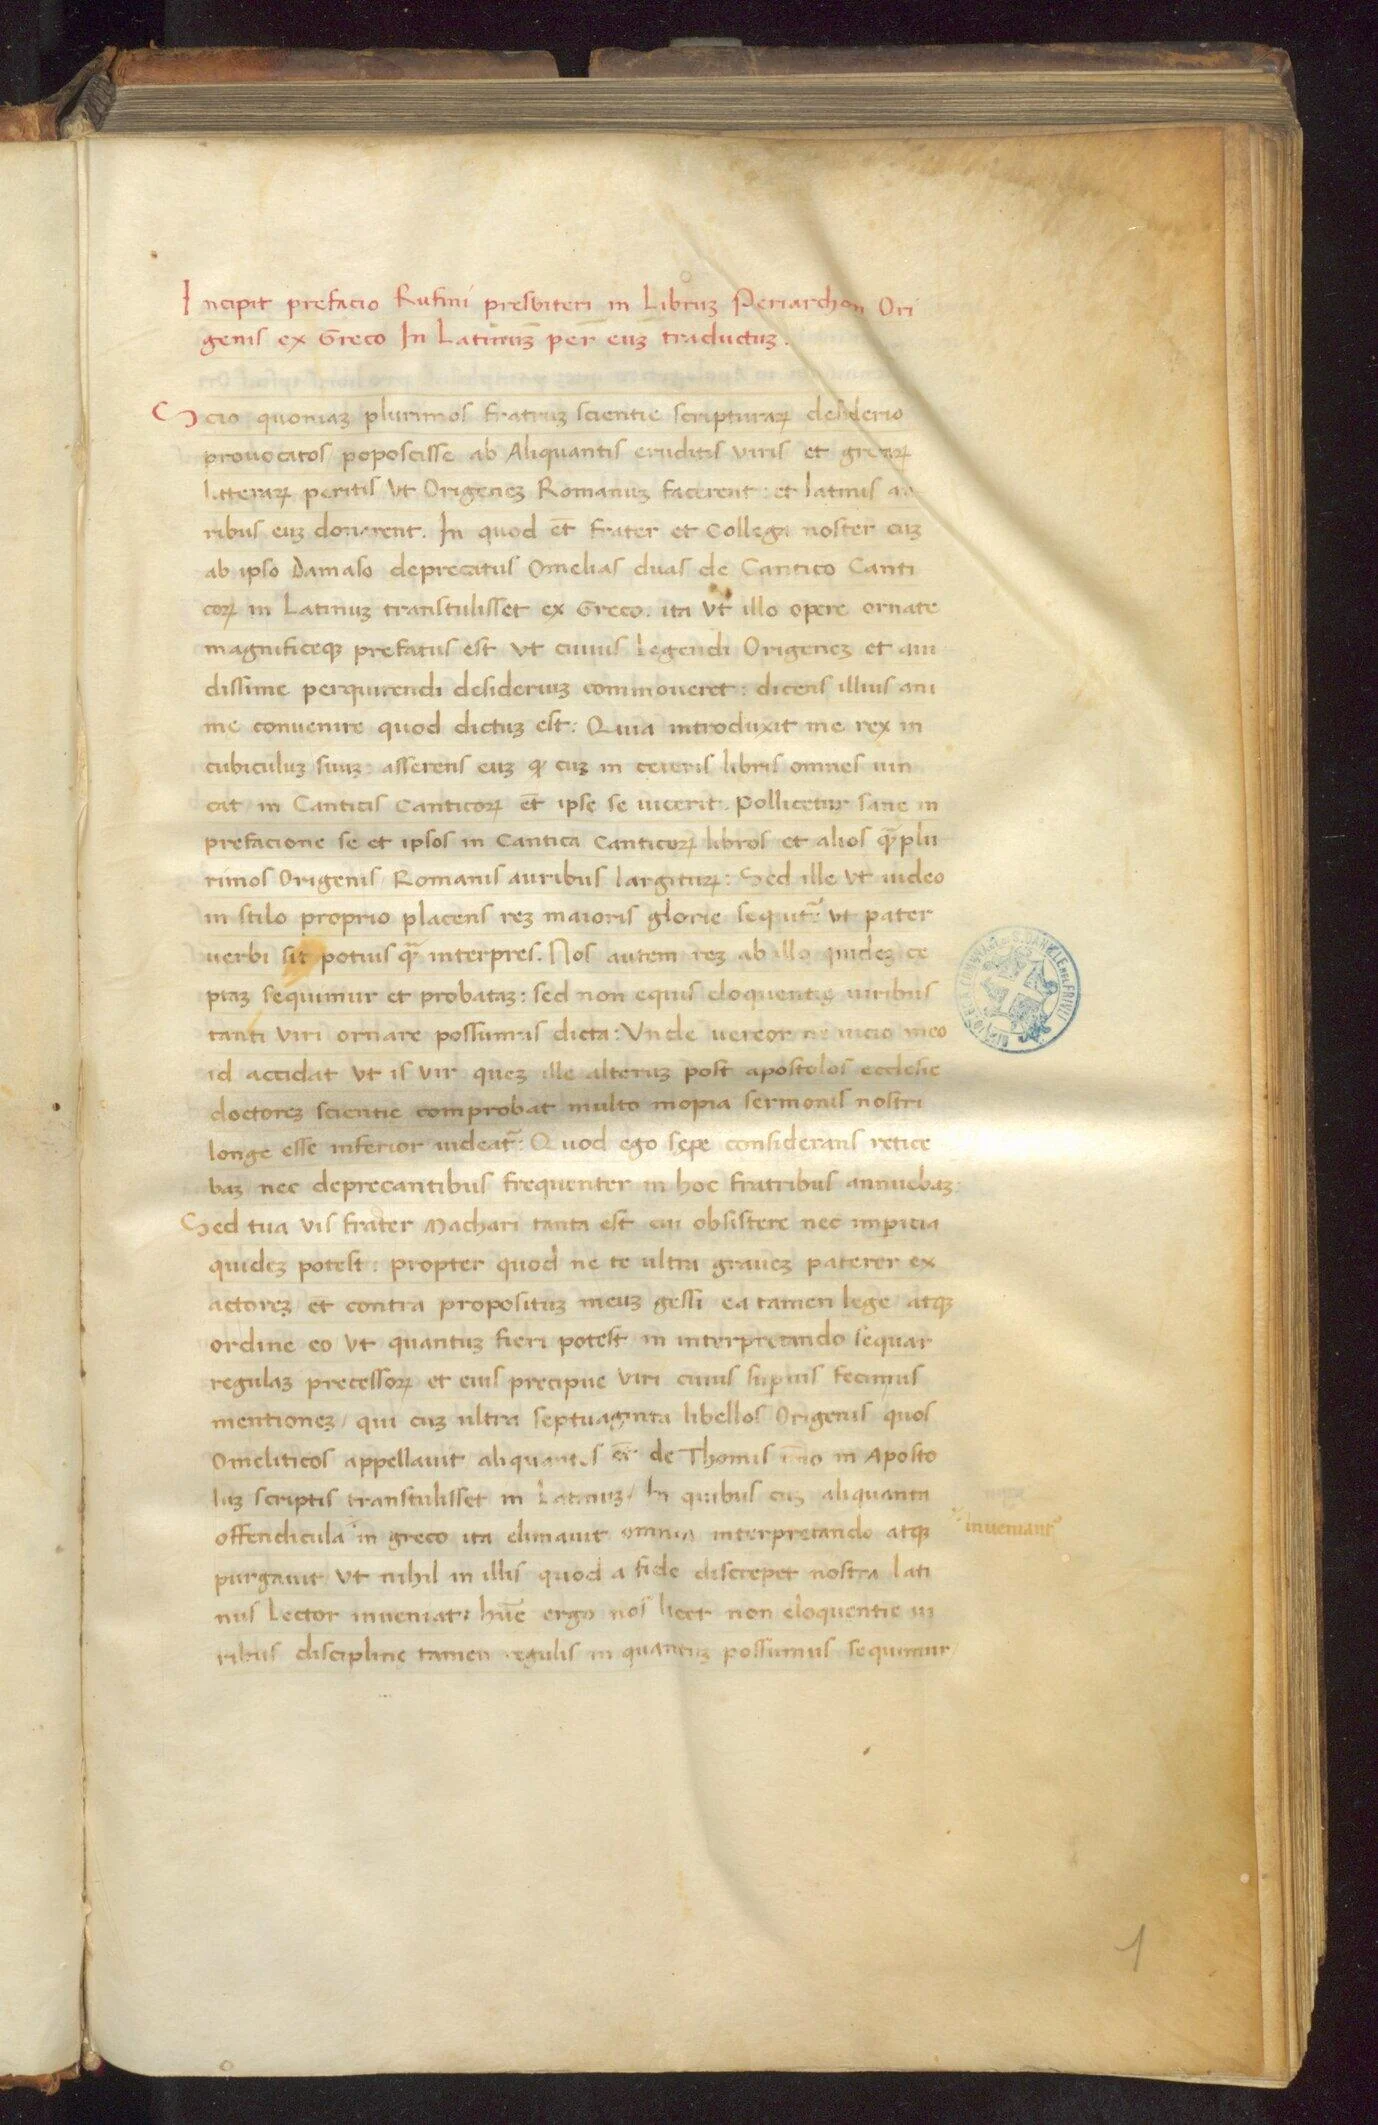 Incipit prefacio Rufini presbiteri in Libruꝫ Periarchon Ori
genis ex Greco In Latinuꝫ per euꝫ traductuꝫ.
Scio quoniaꝫ plurimos fratruꝫ scientie scripturaꝝ desiderio
provocatos poposcisse ab Aliquantis eruditis viris et grecaꝝ
litteraꝝ peritis ut Origeneꝫ Romanuꝫ facerent: et latinis au
ribus euꝫ donarent. In quod et̄ frater et Collega noster cuꝫ
ab ipso Damaso deprecatus Omelias duas de Cantico Canti
coꝝ in Latinuꝫ transtulisset ex Greco. ita ut illo opere ornate
magnificeqꝫ prefatus est ut cuiuis Legendi Origeneꝫ et aui
dissime perquirendi desideriuꝫ commoueret: dicens illius ani
me convenire quod dictuꝫ est: Quia introduxit me rex in
cubiculuꝫ suuꝫ: asserens euꝫ qꝫ cuꝫ in ceteris libris omnes uin
cat in Canticis Canticoꝝ et̄ ipse se uicerit. Pollicetur sane in
prefacione se et ipsos in Cantica Canticoꝝ libros et alios qꝫ̄ plu
rimos Origenis Romanis auribus largituꝝ: Sed ille ut uideo
in stilo proprio placens reꝫ maioris glorie sequit᷑: ut pater
uerbi sit potius qꝫ̄ interpres. Nos autem reꝫ ab illo quideꝫ ce
ptaꝫ sequimur et probataꝫ: sed non equis eloquentie uiribus
tanti viri ornare possumus dicta: Vnde uereor ne uicio meo
id accidat ut is vir queꝫ ille alteruꝫ post apostolos ecclesie
doctoreꝫ scientie comprobat multo inopia sermonis nostri
longe esse inferior uideat᷑: Quod ego sepe considerans retice
baꝫ nec deprecantibus frequenter in hoc fratribus annuebaꝫ:
Sed tua vis frater Machari tanta est cui obsistere nec imperitia
quideꝫ potest: propter quod ne te ultra graueꝫ paterer ex
actoreꝫ et contra propositum meuꝫ gessi ea tamen lege atqꝫ
ordine eo ut quantuꝫ fieri potest in interpretando sequar
regulaꝫ precessoꝝ et eius precipue viri cuius supius fecimus
mentioneꝫ/ qui cuꝫ ultra septuaginta libellos Origenis quos
Omeliticos appellauit aliquantos et̄ de Thomis in Aposto
luꝫ scriptis transtulisset in Latinuꝫ/ In quibus cuꝫ aliquanta
offendicula in greco ita elimauit omnia interpretando atqꝫ
inueniant᷑
purgauit ut nihil in illis quod a fide discrepet nostra Lati
nus Lector inueniat: hūc ergo nos licet non eloquentie ui
ribus discipline tamen regulis in quantuꝫ possumus sequimur/
1